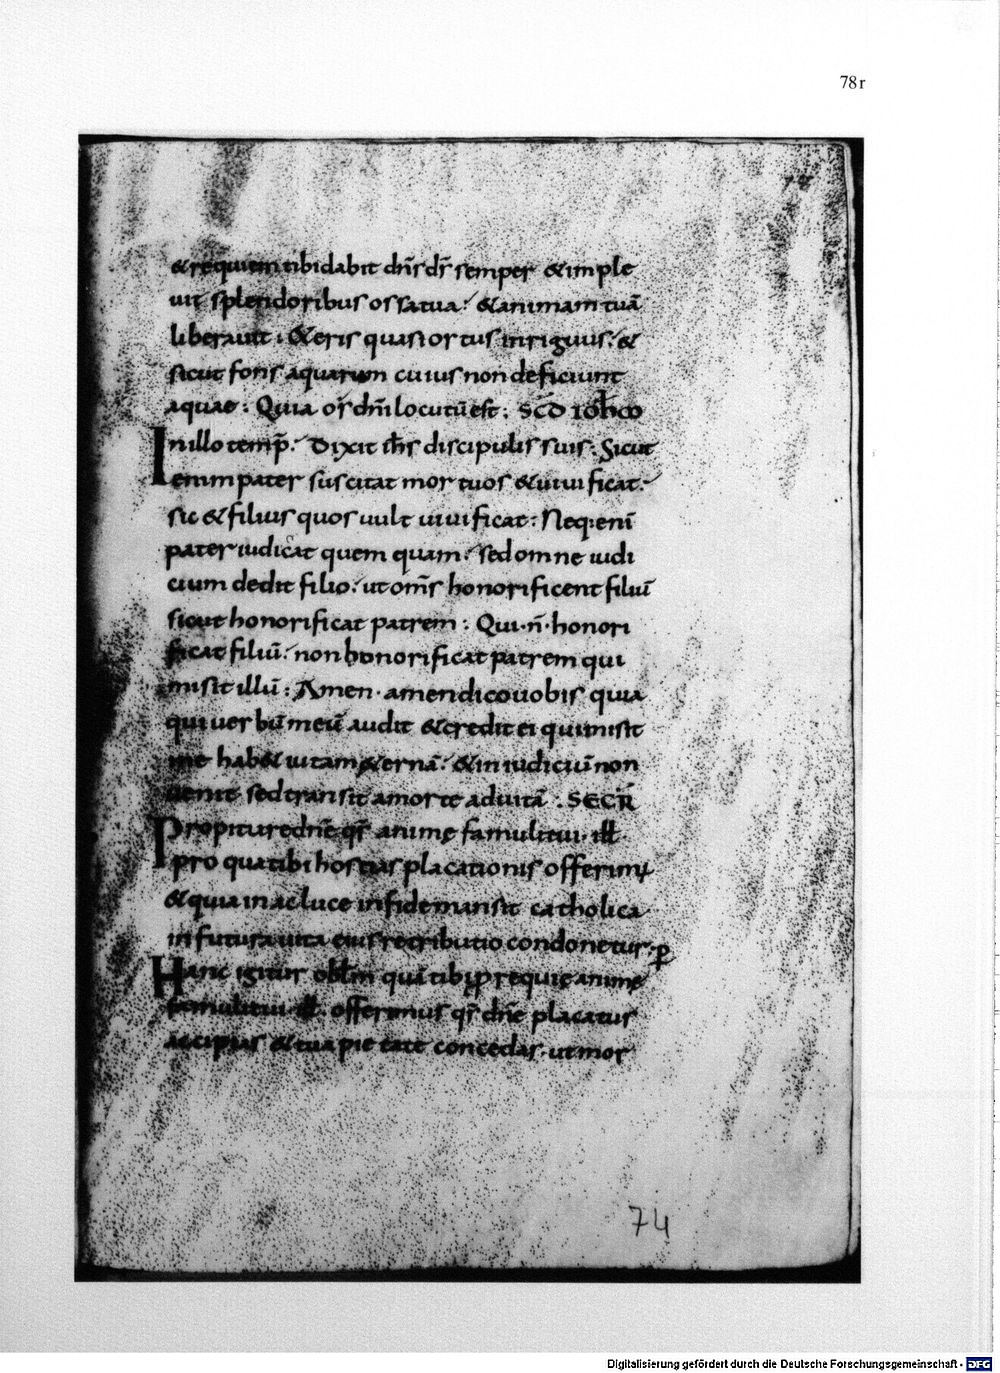 78r
& requiem tibi dabit dn̄s d̄s semper & imple
uit splendoribus ossa tua. & animam tuā
liberauit. & eris quasi ortus inriguus. &
sicut fons aquarum cuius non deficiunt
aquae. Quia os dn̄i locutū est. SCD IOHCO
In illo temp̄. Dixit ih̄s discipulis suis. Sicut
enim pater suscitat mortuos & uiuificat.
sic & filius quos uult uiuificat. Neq; eni̅
pater iudicat quem quam. sed omne iudi
cium dedit filio. ut om̄s honorificent filiū
sicut honorificat patrem. Qui · n̄ · honori
ficat filiū. non honorificat patrem qui
misit illū. Amen · amen dico uobis quia
qui uerbū meū audit & credit ei qui misit
me hab& uitam &ernā. & in iudiciū non
uenit sed transit a morte ad uitā. SECR̄
Propiture dn̄e qs̄ animę famuli tui · ill̄
pro qua tibi hostias placationis offerim;
& quia in ac luce in fide mansit catholica
in futura uita eius retributio condonetur. p̄
Hanc igitur obl̄m quā tibi p requię animę
famuli tui · ill̄. offerimus qs̄ dn̄e placatus
accipias & tua pietate concedas. ut mor
74
Digitalisierung gefördert durch die Deutsche Forschungsgemeinschaft - DFG